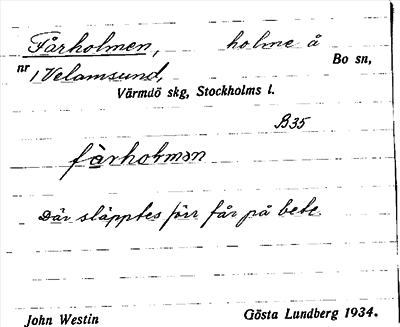 Fårholmen, holme å Bo sn,
nr 1 Velamsund,
Värmdö skg, Stockholms l.
B35
fàrhoḷmən
Där släpptes förr får på bete.
John Westin Gösta Lundberg 1934.